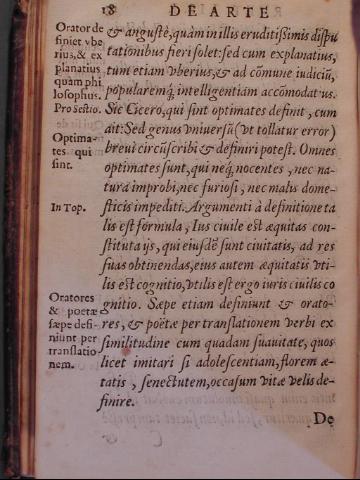 18 DE ARTE
Orator de
finiet vbe
rius, & ex
planatius
quàm phi
losophus.
Pro Sestio.
Optima-
tes qui
sint.
In Top.
Oratores
& poetæ
sæpe defi-
niunt per
translatio
nem.
& angustè, quàm in illis eruditißimis dispu
tationibus fieri solet: sed cum explanatius,
tum etiam vberius, & ad cōmune iudiciū,
popularemq́; intelligentiam accōmodatus.
Sic Cicero, qui sint optimates definit, cum
ait: Sed genus vniuersū (vt tollatur error)
breui circūscribi & definiri potest. Omnes
optimates sunt, qui neq́; nocentes, nec na-
tura improbi, nec furiosi, nec malis dome-
sticis impediti. Argumenti à definitione ta
lis est formula, Ius ciuile est æquitas con-
stituta ijs, qui eiusdē sunt ciuitatis, ad res
suas obtinendas, eius autem æquitatis vti-
lis est cognitio, vtilis est ergo iuris ciuilis co
gnitio. Sæpe etiam definiunt & orato-
res, & poëtæ per translationem verbi ex
similitudine cum quadam suauitate, quos
licet imitari si adolescentiam, florem æ-
tatis, senectutem, occasum vitæ velis de-
finire.
De